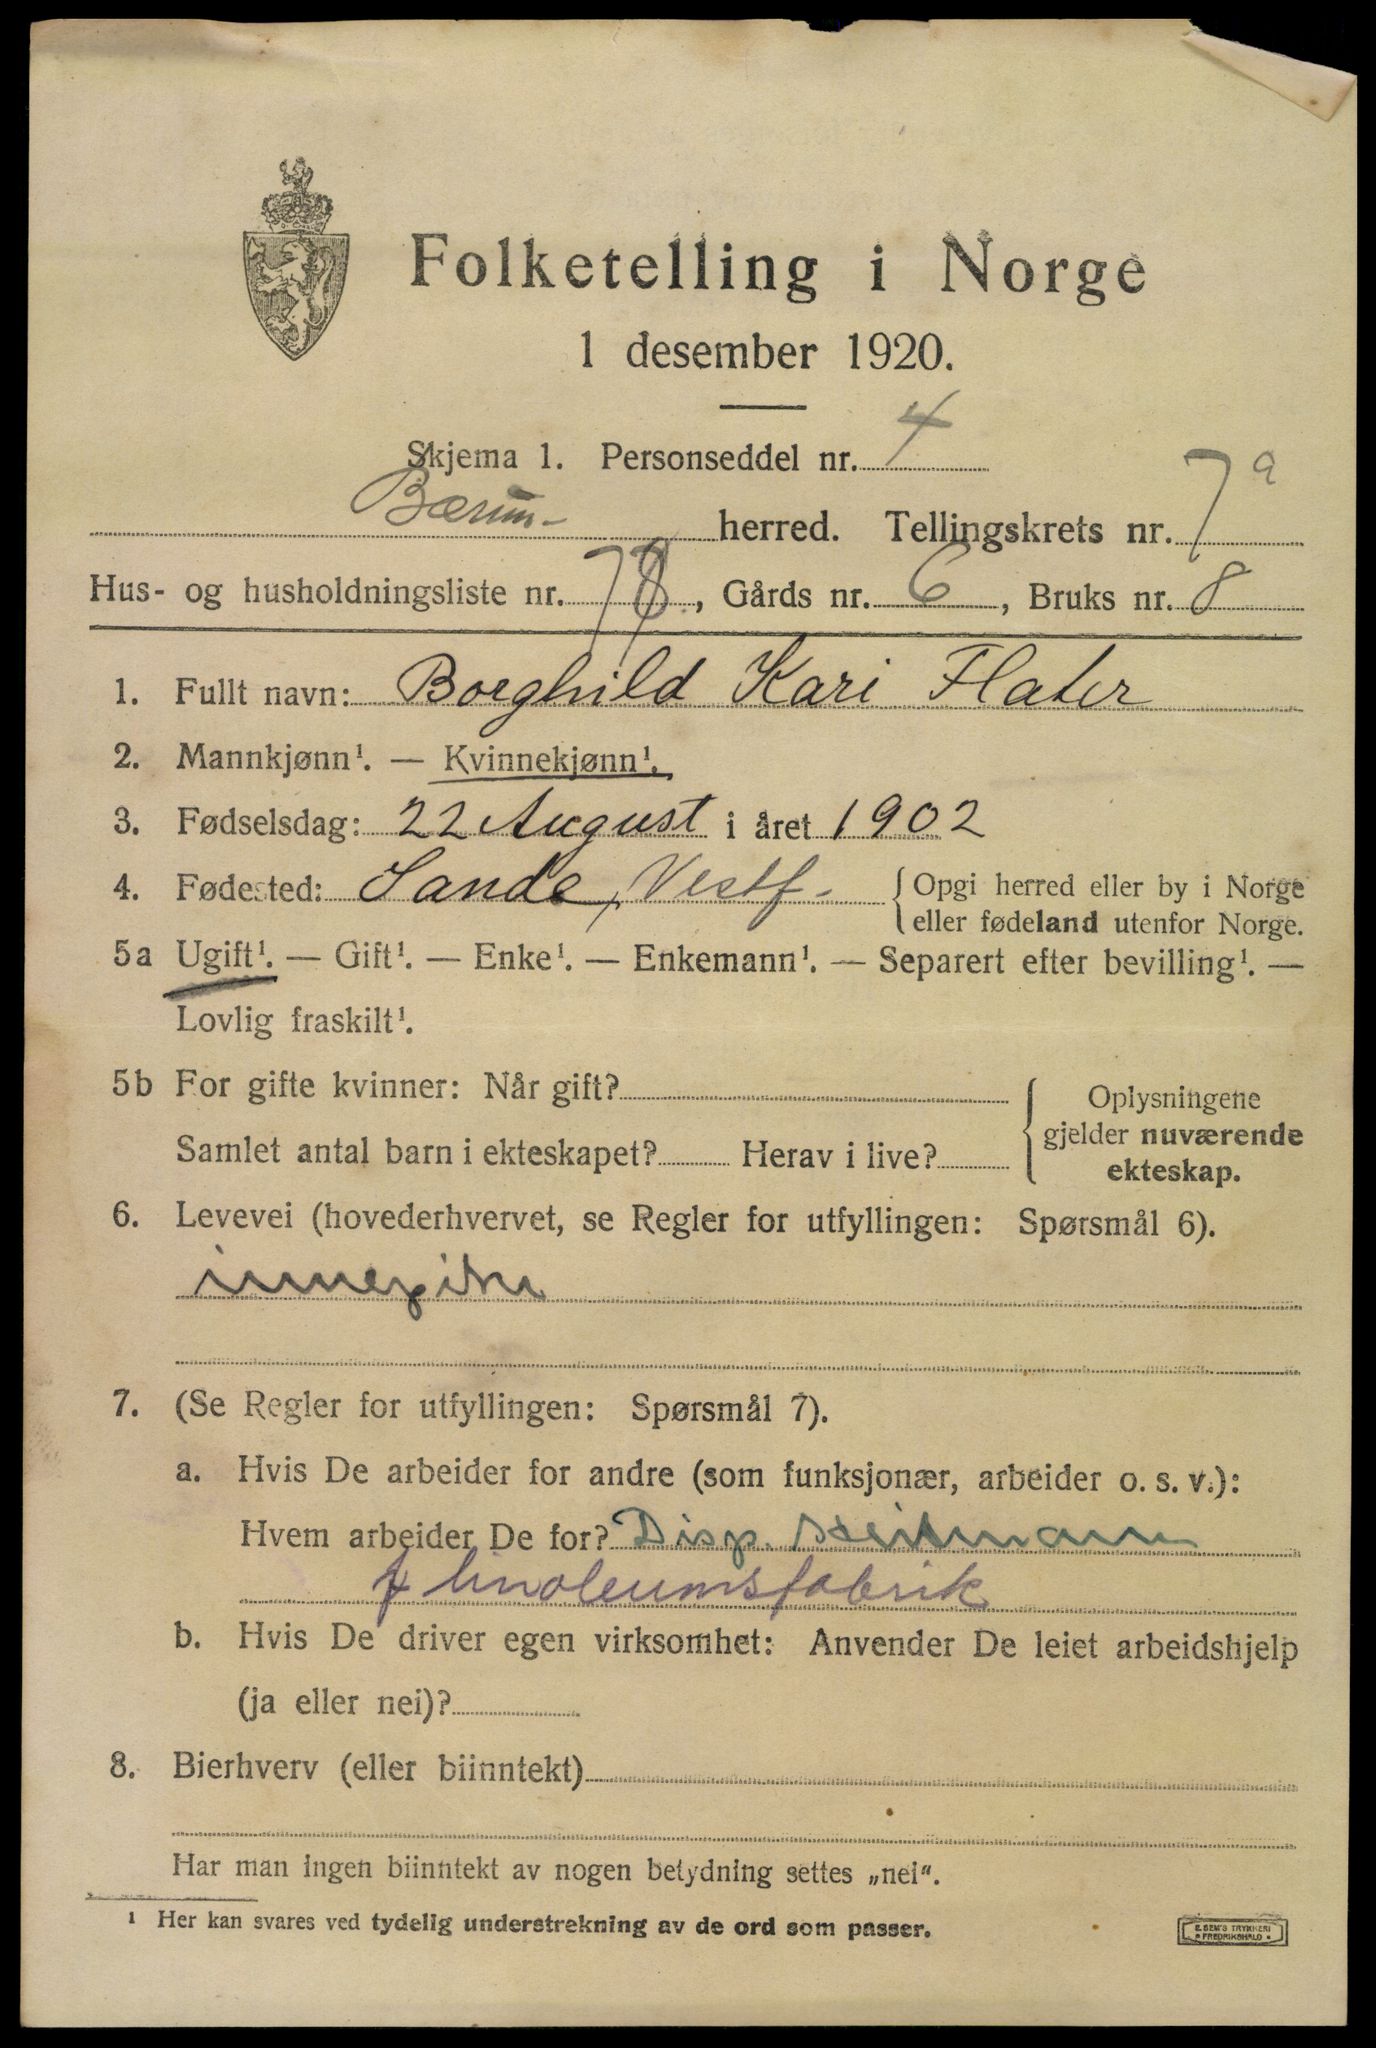 Folketelling i Norge
1 desember 1920.
Skjema 1. Personseddel nr. 4
Bærum herred. Tellingskrets nr. 7a
Hus- og husholdningsliste nr. , Gårds nr. 6, Bruks nr. 8
1. Fullt navn: Borghild Kari Flater
2. Mannkjønn¹. — Kvinnekjønn¹.
3. Fødselsdag: 22 August i året 1902
4. Fødested: Sande, Vestf. { Opgi herred eller by i Norge
eller fødeland utenfor Norge.
5a Ugift¹. — Gift¹. — Enke¹. — Enkemann¹. — Separert efter bevilling¹. —
Lovlig fraskilt¹.
5b For gifte kvinner: Når gift?
Samlet antal barn i ekteskapet? Herav i live?
{ Oplysningene
gjelder nuværende
ekteskap.
6. Levevei (hovederhvervet, se Regler for utfyllingen: Spørsmål 6).
innepike
7. (Se Regler for utfyllingen: Spørsmål 7).
a. Hvis De arbeider for andre (som funksjonær, arbeider o. s. v.):
Hvem arbeider De for? Disp. Heitmann
f linoleumsfabrik
b. Hvis De driver egen virksomhet: Anvender De leiet arbeidshjelp
(ja eller nei)?
8. Bierhverv (eller biinntekt)
Har man ingen biinntekt av nogen betydning settes „nei“.
¹ Her kan svares ved tydelig understrekning av de ord som passer.
E. SEM'S TRYKKERI
FREDRIKSHALD